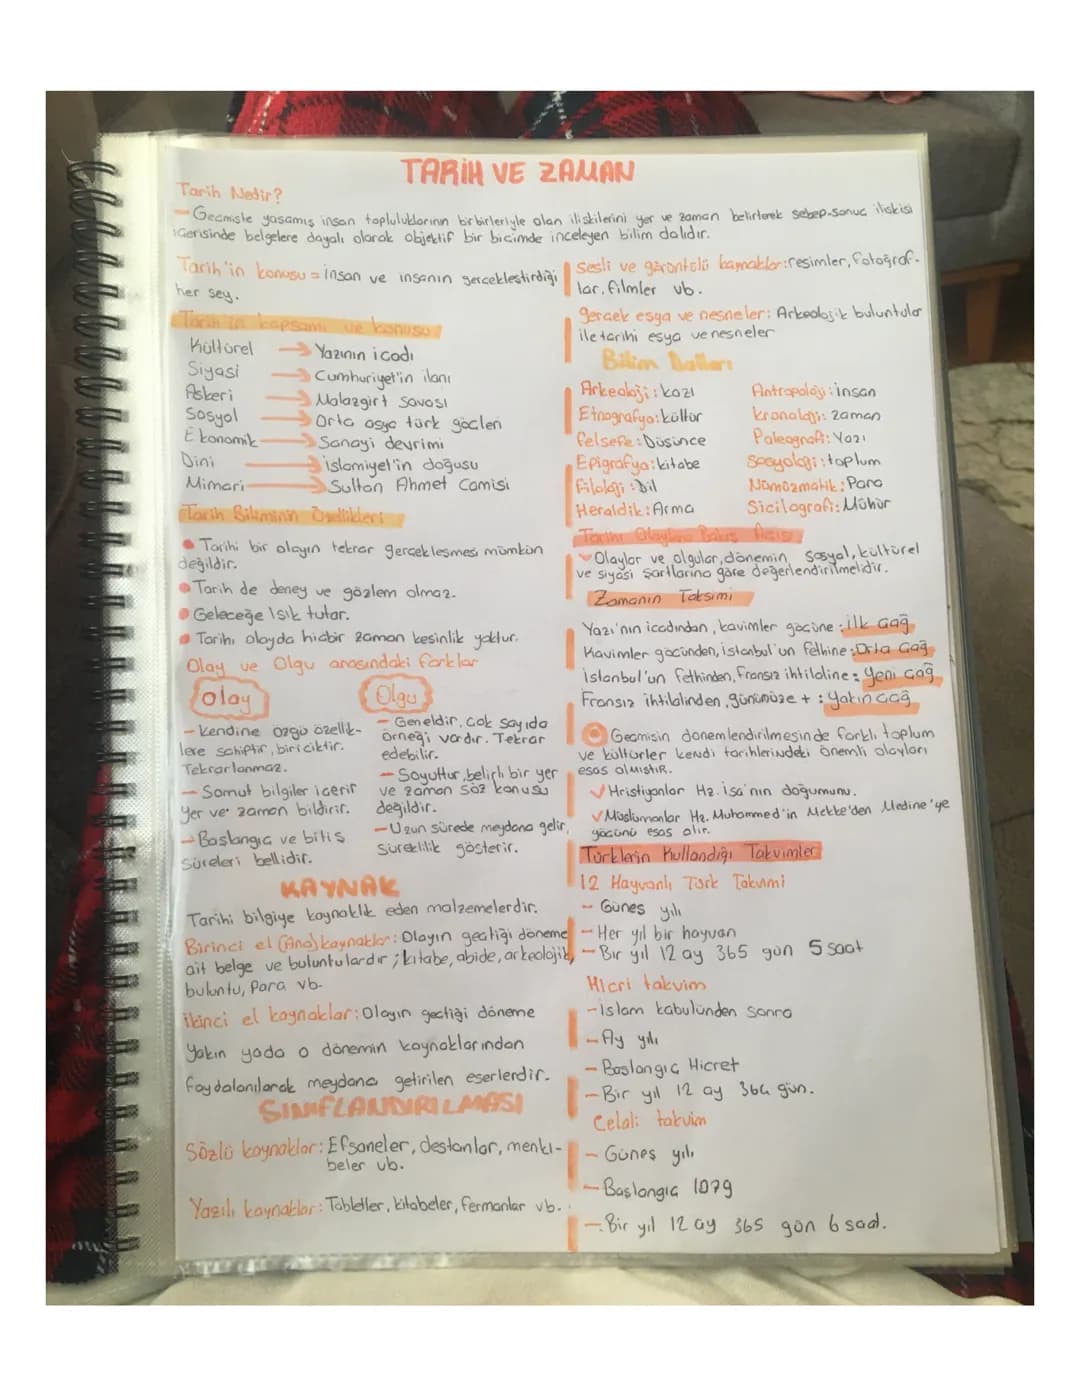 TARİH VE ZAMAN
Tarih Nedir?
- Geçmişte yaşamış insan topluluklarının birbirleriyle olan ilişkilerini yer ve zaman belirterek sebep-sonuç ilişkisi
içerisinde belgelere dayalı olarak objektif bir biçimde inceleyen bilim dalıdır.
Tarih'in konusu = insan ve insanın gerçekleştirdiği
her şey.
Tarih'in kapsamı ve konusu
Kültürel → Yazının icadı
Siyasi → Cumhuriyet'in ilanı
Askeri → Malazgirt savaşı
Sosyal → Orta asya türk göçleri
Ekonomik → Sanayi devrimi
Dini → islamiyet'in doğuşu
Mimari → Sultan Ahmet Camisi
Tarih Biliminin Özellikleri
• Tarihi bir olayın tekrar gerçekleşmesi mümkün
değildir.
• Tarih de deney ve gözlem olmaz.
• Geleceğe ışık tutar.
• Tarihi olayda hiçbir zaman kesinlik yoktur.
Olay ve Olgu arasındaki farklar
Olay
- Kendine özgü özellik-
lere sahiptir, biriciktir.
Tekrarlanmaz.
- Somut bilgiler içerir
yer ve zaman bildirir.
- Başlangıç ve bitiş
süreleri bellidir.
Olgu
- Geneldir. Çok sayıda
örneği vardır. Tekrar
edebilir.
- Soyuttur, belirli bir yer
ve zaman söz konusu
değildir.
- Uzun sürede meydana gelir,
süreklilik gösterir.
KAYNAK
Tarihi bilgiye kaynaklık eden malzemelerdir.
Birinci el (Ana) kaynaklar: Olayın geçtiği döneme
ait belge ve buluntulardır; kitabe, abide, arkeolojik,
buluntu, para vb.
ikinci el kaynaklar: Olayın geçtiği döneme
yakın yada o dönemin kaynaklarından
faydalanılarak meydana getirilen eserlerdir.
SINIFLANDIRILMASI
Sözlü kaynaklar: Efsaneler, destanlar, menkı-
beler vb.
Yazılı kaynaklar: Tabletler, kitabeler, fermanlar vb.
sesli ve görüntülü kaynaklar: resimler, fotoğraf-
lar, filmler vb.
gerçek eşya ve nesneler: Arkeolojik buluntular
ile tarihi eşya ve nesneler
Bilim Dalları
Arkeoloji: kazı
Etnografya: kültür
felsefe: Düşünce
Epigrafya: kitabe
filoloji: Dil
Heraldik: Arma
Antropoloji: insan
kronoloji: zaman
Paleografi: Yazı
Sosyoloji: toplum
Nümüzmatik: Para
Sicilografi: Mühür
Tarihi Olaylara Bakış Açısı
Olaylar ve olgular, dönemin sosyal, kültürel
ve siyasi şartlarına göre değerlendirilmelidir.
Zamanın Taksimi
Yazı'nın icadından, kavimler göçüne: İlk Çağ
Kavimler göçünden, istanbul'un fethine: Orta Çağ
İstanbul'un fethinden, fransız ihtilaline: Yeni çağ
Fransız ihtilalinden, günümüze +: Yakın çağ
Geçmişin dönemlendirilmesinde farklı toplum
ve kültürler kendi tarihlerindeki önemli olayları
esas almıştır.
✓ Hristiyanlar Hz. İsa'nın doğumunu.
✓ Müslümanlar Hz. Muhammed'in Mekke'den Medine'ye
göçünü esas alır.
Türklerin Kullandığı Takvimler
12 Hayvanlı Türk Takvimi
- Güneş yılı
- Her yıl bir hayvan
- Bir yıl 12 ay 365 gün 5 saat
Hicri takvim
- İslam kabulünden sonra
- Ay yılı
- Başlangıç Hicret
- Bir yıl 12 ay 364 gün.
Celali takvim
- Güneş yılı
- Başlangıç 1079
- Bir yıl 12 ay 365 gün 6 saat.